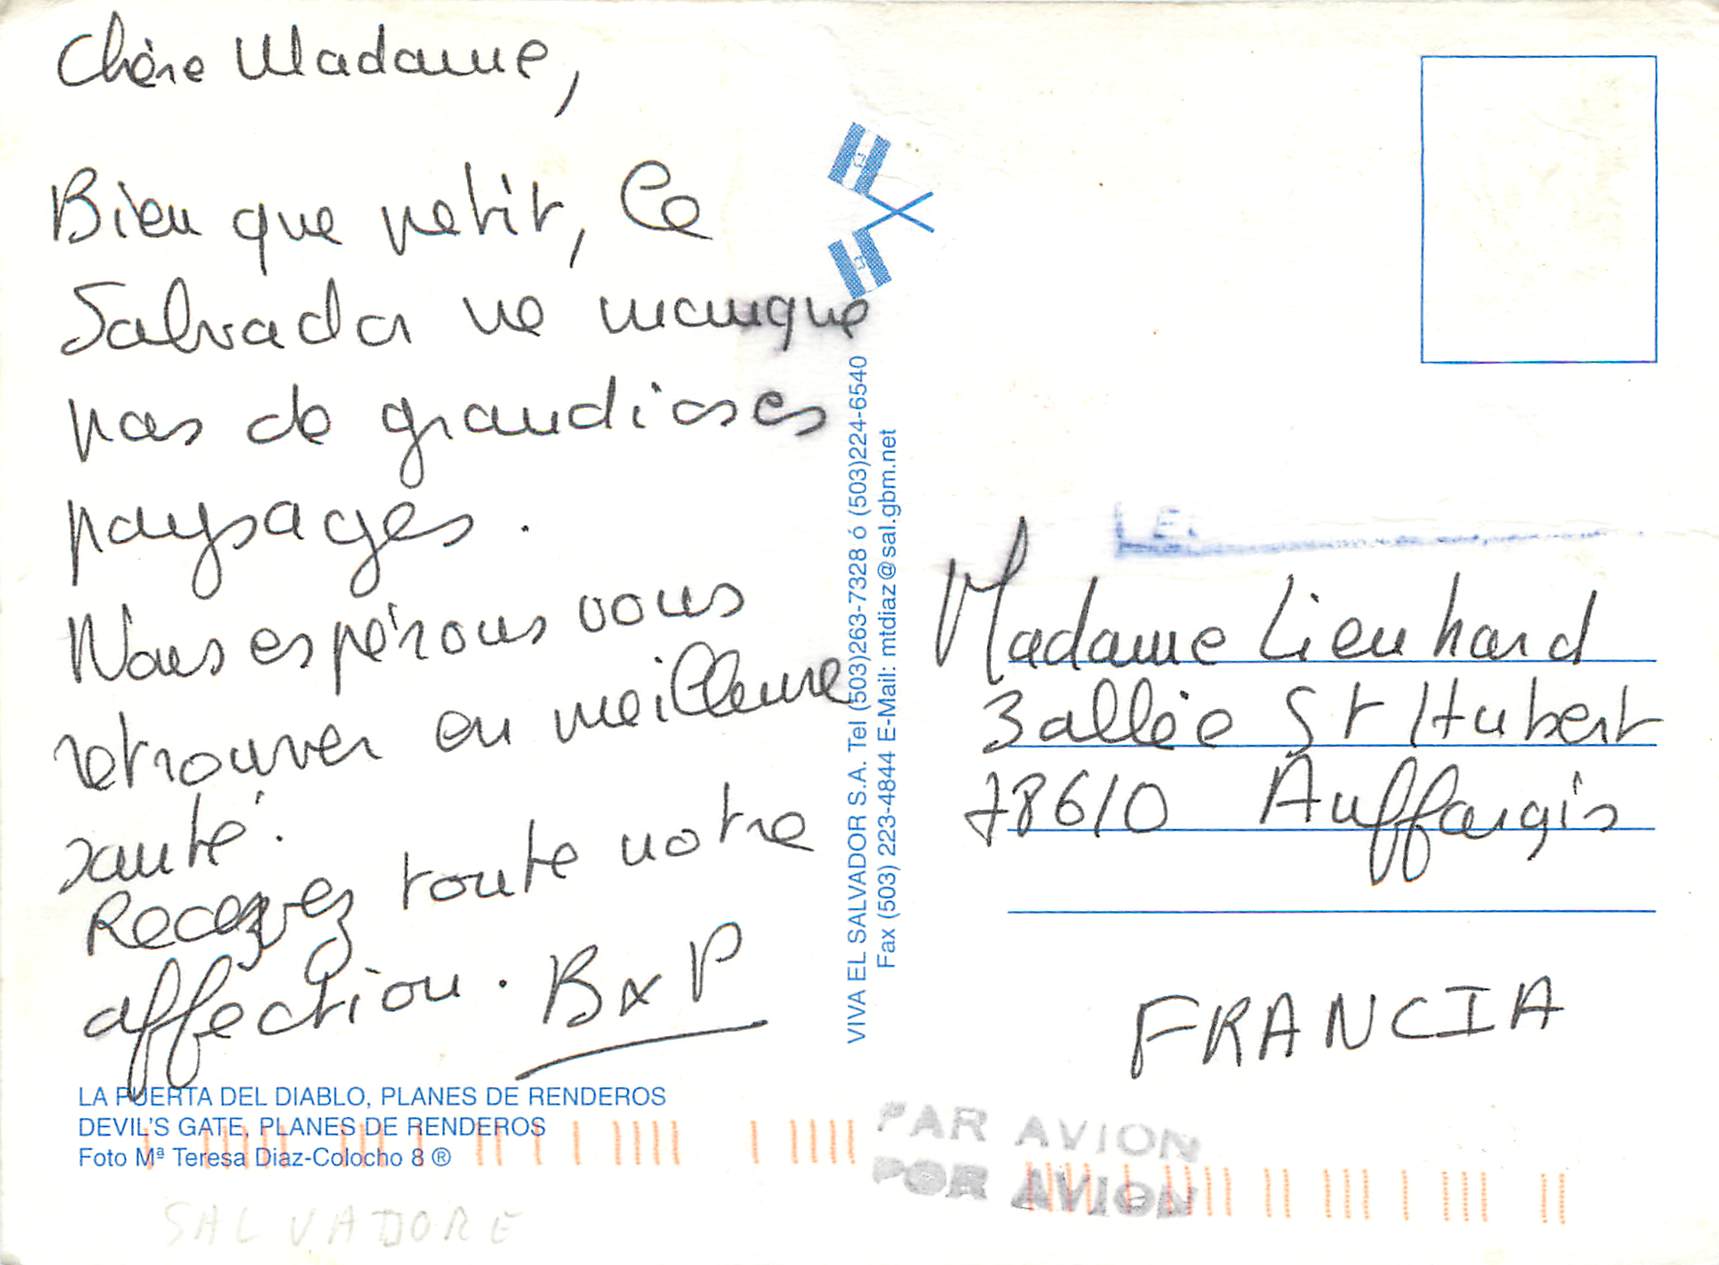 Chère Madame,
Bien que petit, Le
Salvador ne manque
pas de grandioses
paysages.
Nous espérons vous
retrouver en meilleure
santé.
Recevez toute notre
affection. B x P
LA PUERTA DEL DIABLO, PLANES DE RENDEROS
DEVIL'S GATE, PLANES DE RENDEROS
Foto Mª Teresa Diaz-Colocho 8 ®
SALVADORE
VIVA EL SALVADOR S.A. Tel (503)263-7328 ó (503)224-6540
Fax (503) 223-4844 E-Mail: mtdiaz@sal.gbm.net
Madame Lienhard
3 allée St Hubert
78610 Auffargis
FRANCIA
PAR AVION
POR AVION